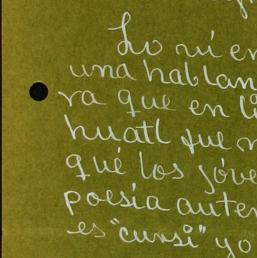 Lo ví en
una hablan
ra que en l
huatl fue
qué los jóve
poesía auten
es "cursi" yo